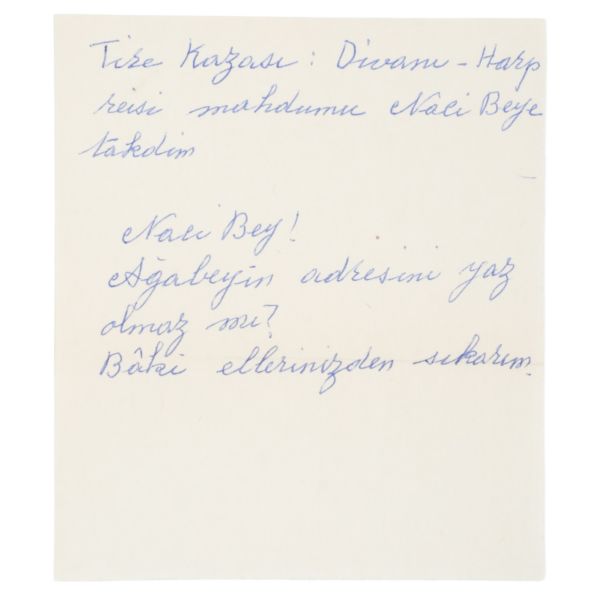 Tire Kazası: Divanı-Harp
reisi mahdumu Naci Beye
takdim
Naci Bey!
Ağabeyin adresini yaz
olmaz mı?
Bâki ellerinizden sıkarım.